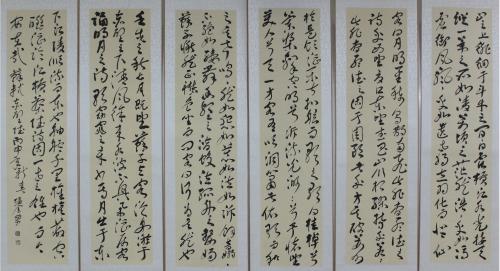 山之上徘徊於斗牛之間白露橫江水光接天
縱一葦之所如凌萬頃之茫然浩浩乎如馮
虛御風而不知其所止飄飄乎如遺世獨立羽化而登仙
客曰月明星稀烏鵲南飛此非曹孟德之
詩乎西望夏口東望武昌山川相繆鬱乎蒼
蒼此非孟德之困於周郎者乎方其破荊州
於是飲酒樂甚扣舷而歌之歌曰桂棹兮
蘭槳擊空明兮泝流光渺渺兮予懷望
美人兮天一方客有吹洞簫者倚歌而和
之其聲嗚嗚然如怨如慕如泣如訴餘音嫋嫋
不絕如縷舞幽壑之潛蛟泣孤舟之嫠婦
蘇子愀然正襟危坐而問客曰何為其然也
壬戌之秋七月既望蘇子與客泛舟遊於
赤壁之下清風徐來水波不興舉酒屬客
誦明月之詩歌窈窕之章少焉月出於東
下江陵順流而東也舳艫千里旌旗蔽空
釃酒臨江橫槊賦詩固一世之雄也而今
安在哉 蘇軾赤壁賦丙申